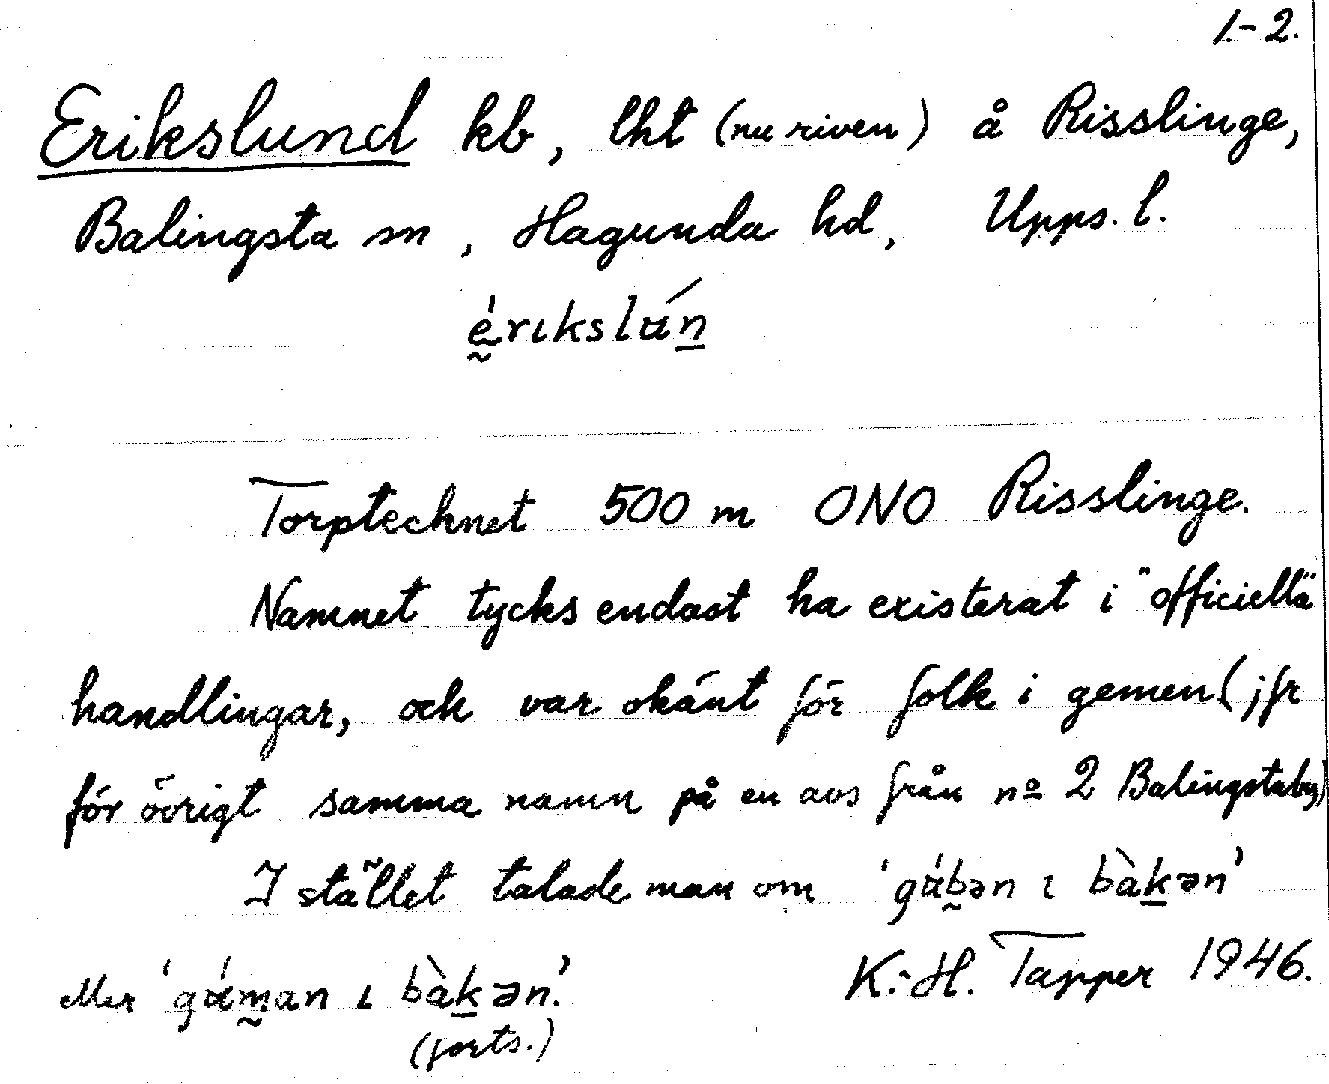 1.-2.
Erikslund kb, lht (nu riven) å Risslinge,
Balingsta sn, Hagunda hd, Upps. l.
ḛ́rɩkslu̇́n̲
Torptecknet 500 m ONO Risslinge.
Namnet tycks endast ha existerat i "officiella"
handlingar, och var okänt för folk i gemen (jfr
för övrigt samma namn på en avs från no 2 Balingstaby)
I stället talade man om 'gɑ́b̰ən ɩ bàk̲ən'
eller 'gɑ́m̰an ɩ bàk̲ən.'
K.-H. Tapper 1946.
(forts.)